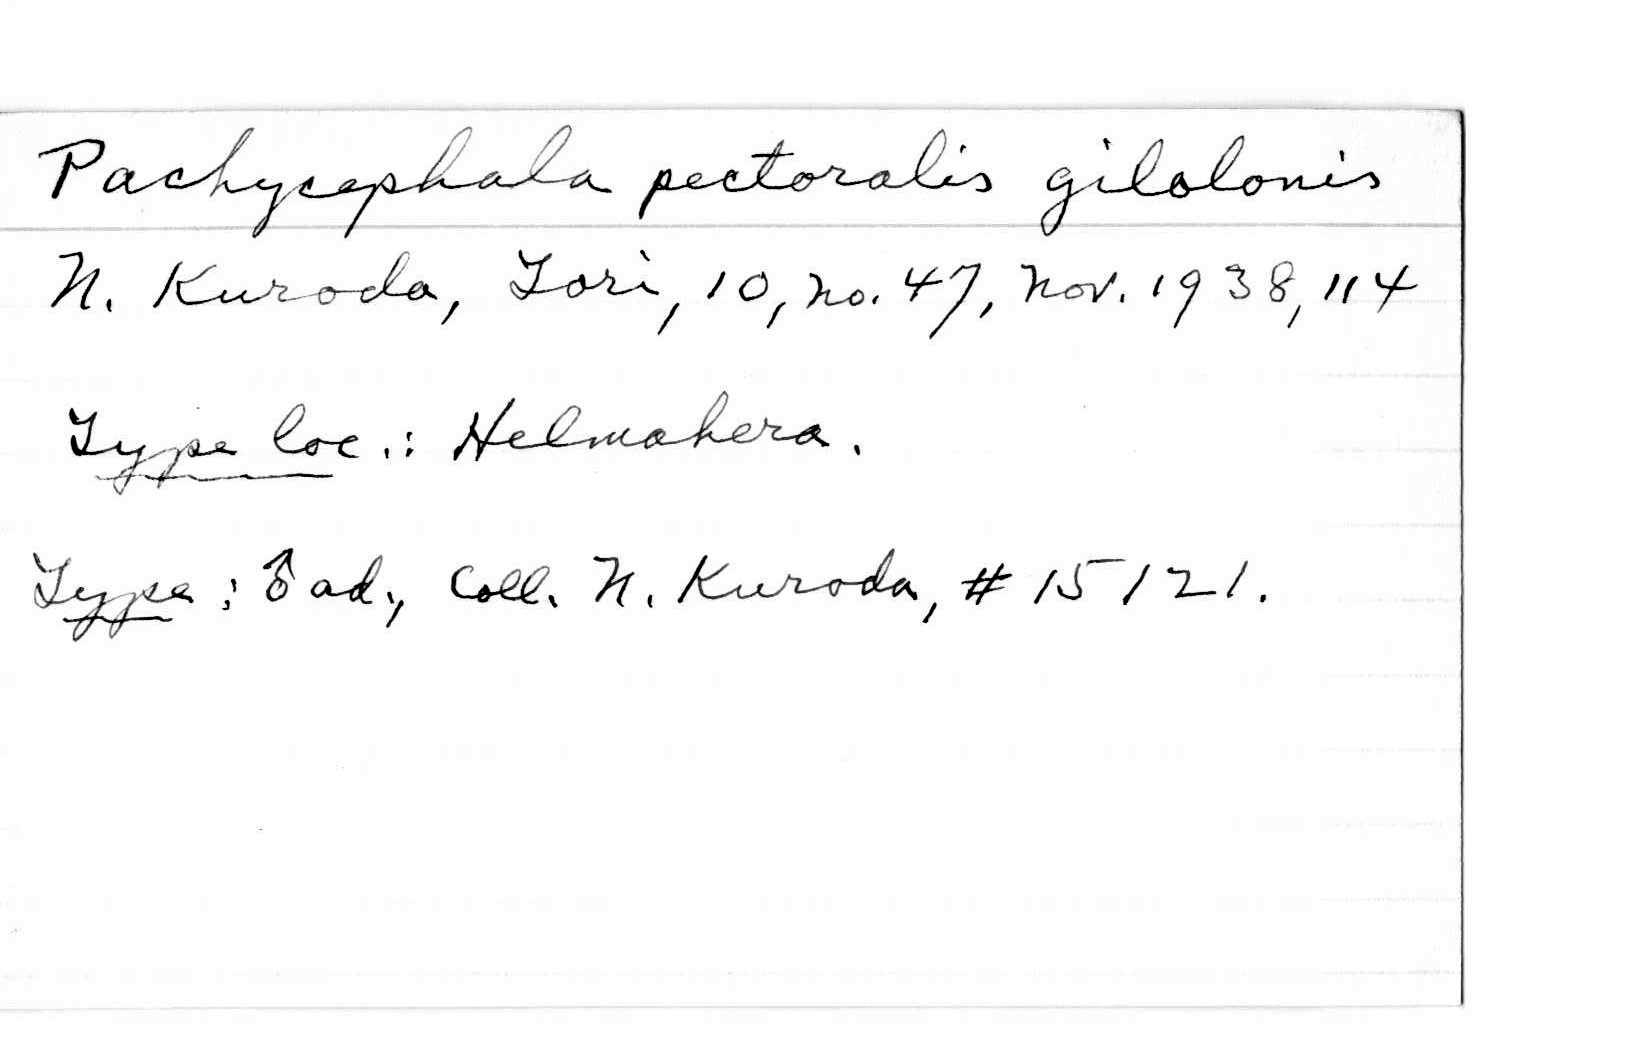 Pachycephala pectoralis gilolonis
N. Kuroda, Tori, 10, no. 47, Nov. 1938, 114
Type loc.: Helmahera.
Type: ♂ ad., Coll. N. Kuroda, # 15121.